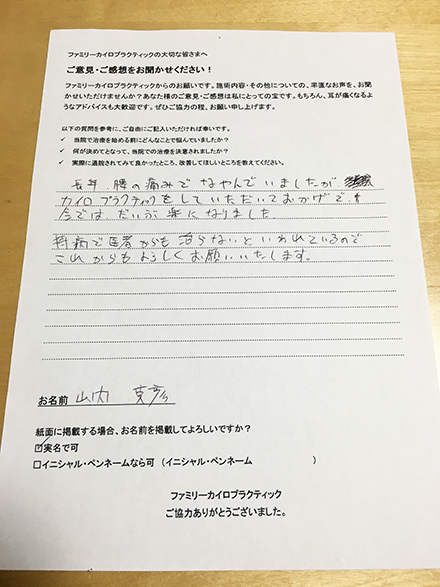 ファミリーカイロプラクティックの大切な皆さまへ
ご意見・ご感想をお聞かせください！
ファミリーカイロプラクティックからのお願いです。施術内容・その他についての、率直なお声を、お聞
かせいただけませんか？あなた様のご意見・ご感想は私にとっての宝です。もちろん、耳が痛くなるよ
うなアドバイスも大歓迎です。ぜひご協力の程、お願い申し上げます。
以下の質問を参考に、ご自由にご記入いただければ幸いです。
✓ 当院で治療を始める前にどんなことで悩んでいましたか？
✓ 何が決めてとなって、当院での治療を決意されましたか？
✓ 実際に通院されてみて良かったところ、改善してほしいところを教えてください。
長年、腰の痛みでなやんでいましたが
カイロプラクティックをしていただいておかげで、
今では、だいぶ楽になりました
持病で医者からも治らないといわれているので
これからもよろしくお願いいたします。
お名前 山内
紙面に掲載する場合、お名前を掲載してよろしいですか？
☑実名で可
□イニシャル・ペンネームなら可（イニシャル・ペンネーム ）
ファミリーカイロプラクティック
ご協力ありがとうございました。